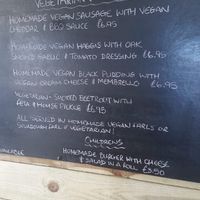 VEGETARIAN
HOMEMADE VEGAN SAUSAGE WITH VEGAN
CHEDDAR & BBQ SAUCE £6.95
HOMEMADE VEGAN HAGGIS WITH OAK
SMOKED GARLIC & TOMATO DRESSING £6.95
HOMEMADE VEGAN BLACK PUDDING WITH
VEGAN CREAM CHEESE & MEMBRILLO £6.95
VEGETARIAN - SMOKED BEETROOT WITH
FETA & HOUSE PICKLE £6.95
ALL SERVED IN HOMEMADE VEGAN BAPS OR
SOURDOUGH IF VEGETARIAN!
CHILDRENS
HOMEMADE BURGER WITH CHEESE
& SALAD IN A ROLL £3.50